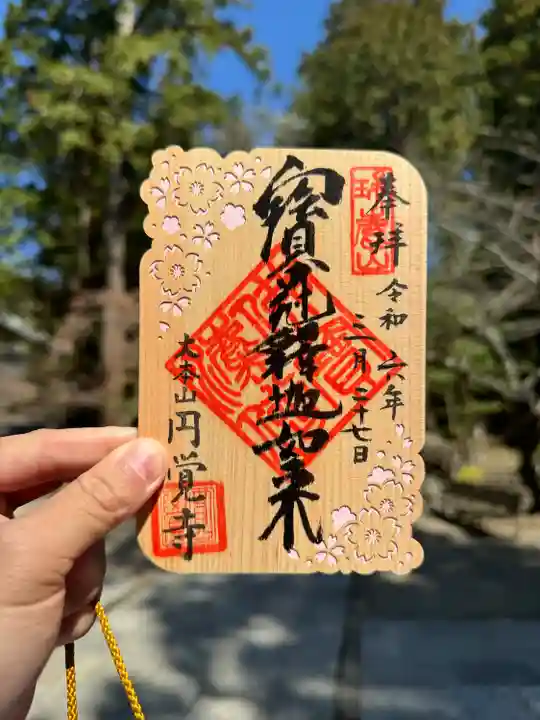 奉拝
令和六年
三月二十七日
寳冠釋迦如来
大本山円覚寺
瑞鹿山